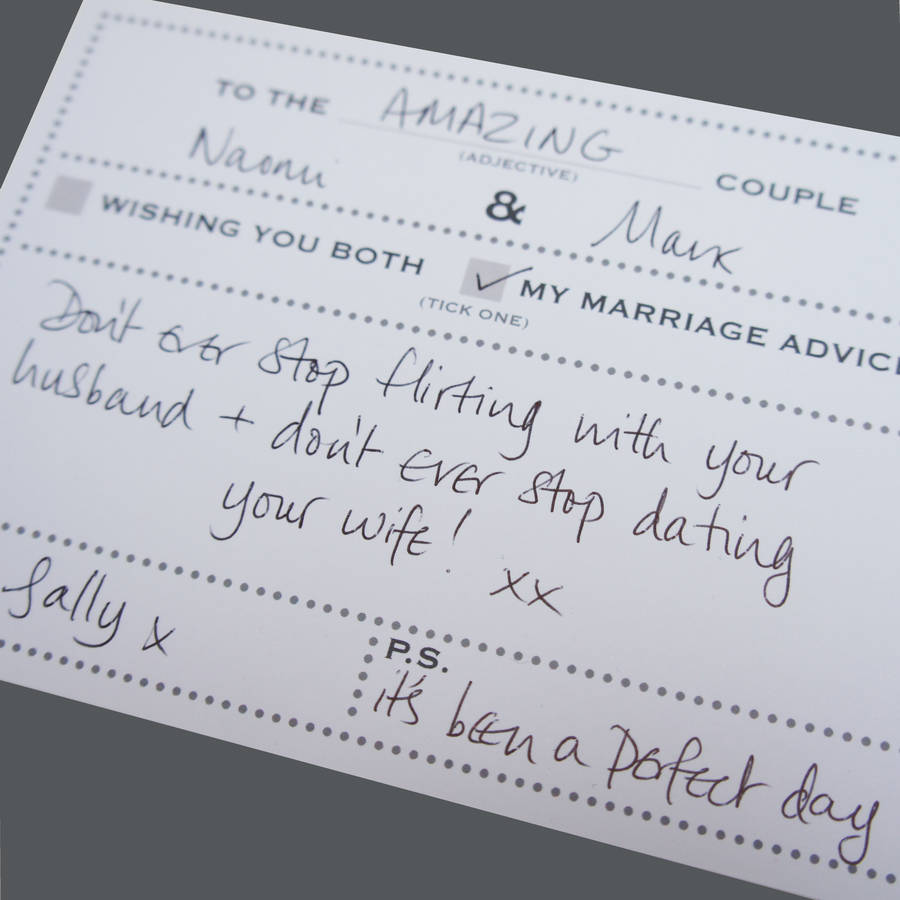 TO THE AMAZING COUPLE
(ADJECTIVE)
Naomi & Mark
WISHING YOU BOTH ✓ MY MARRIAGE ADVICE
(TICK ONE)
Don't ever stop flirting with your
husband + don't ever stop dating
your wife! xx
Sally x
P.S.
it's been a perfect day